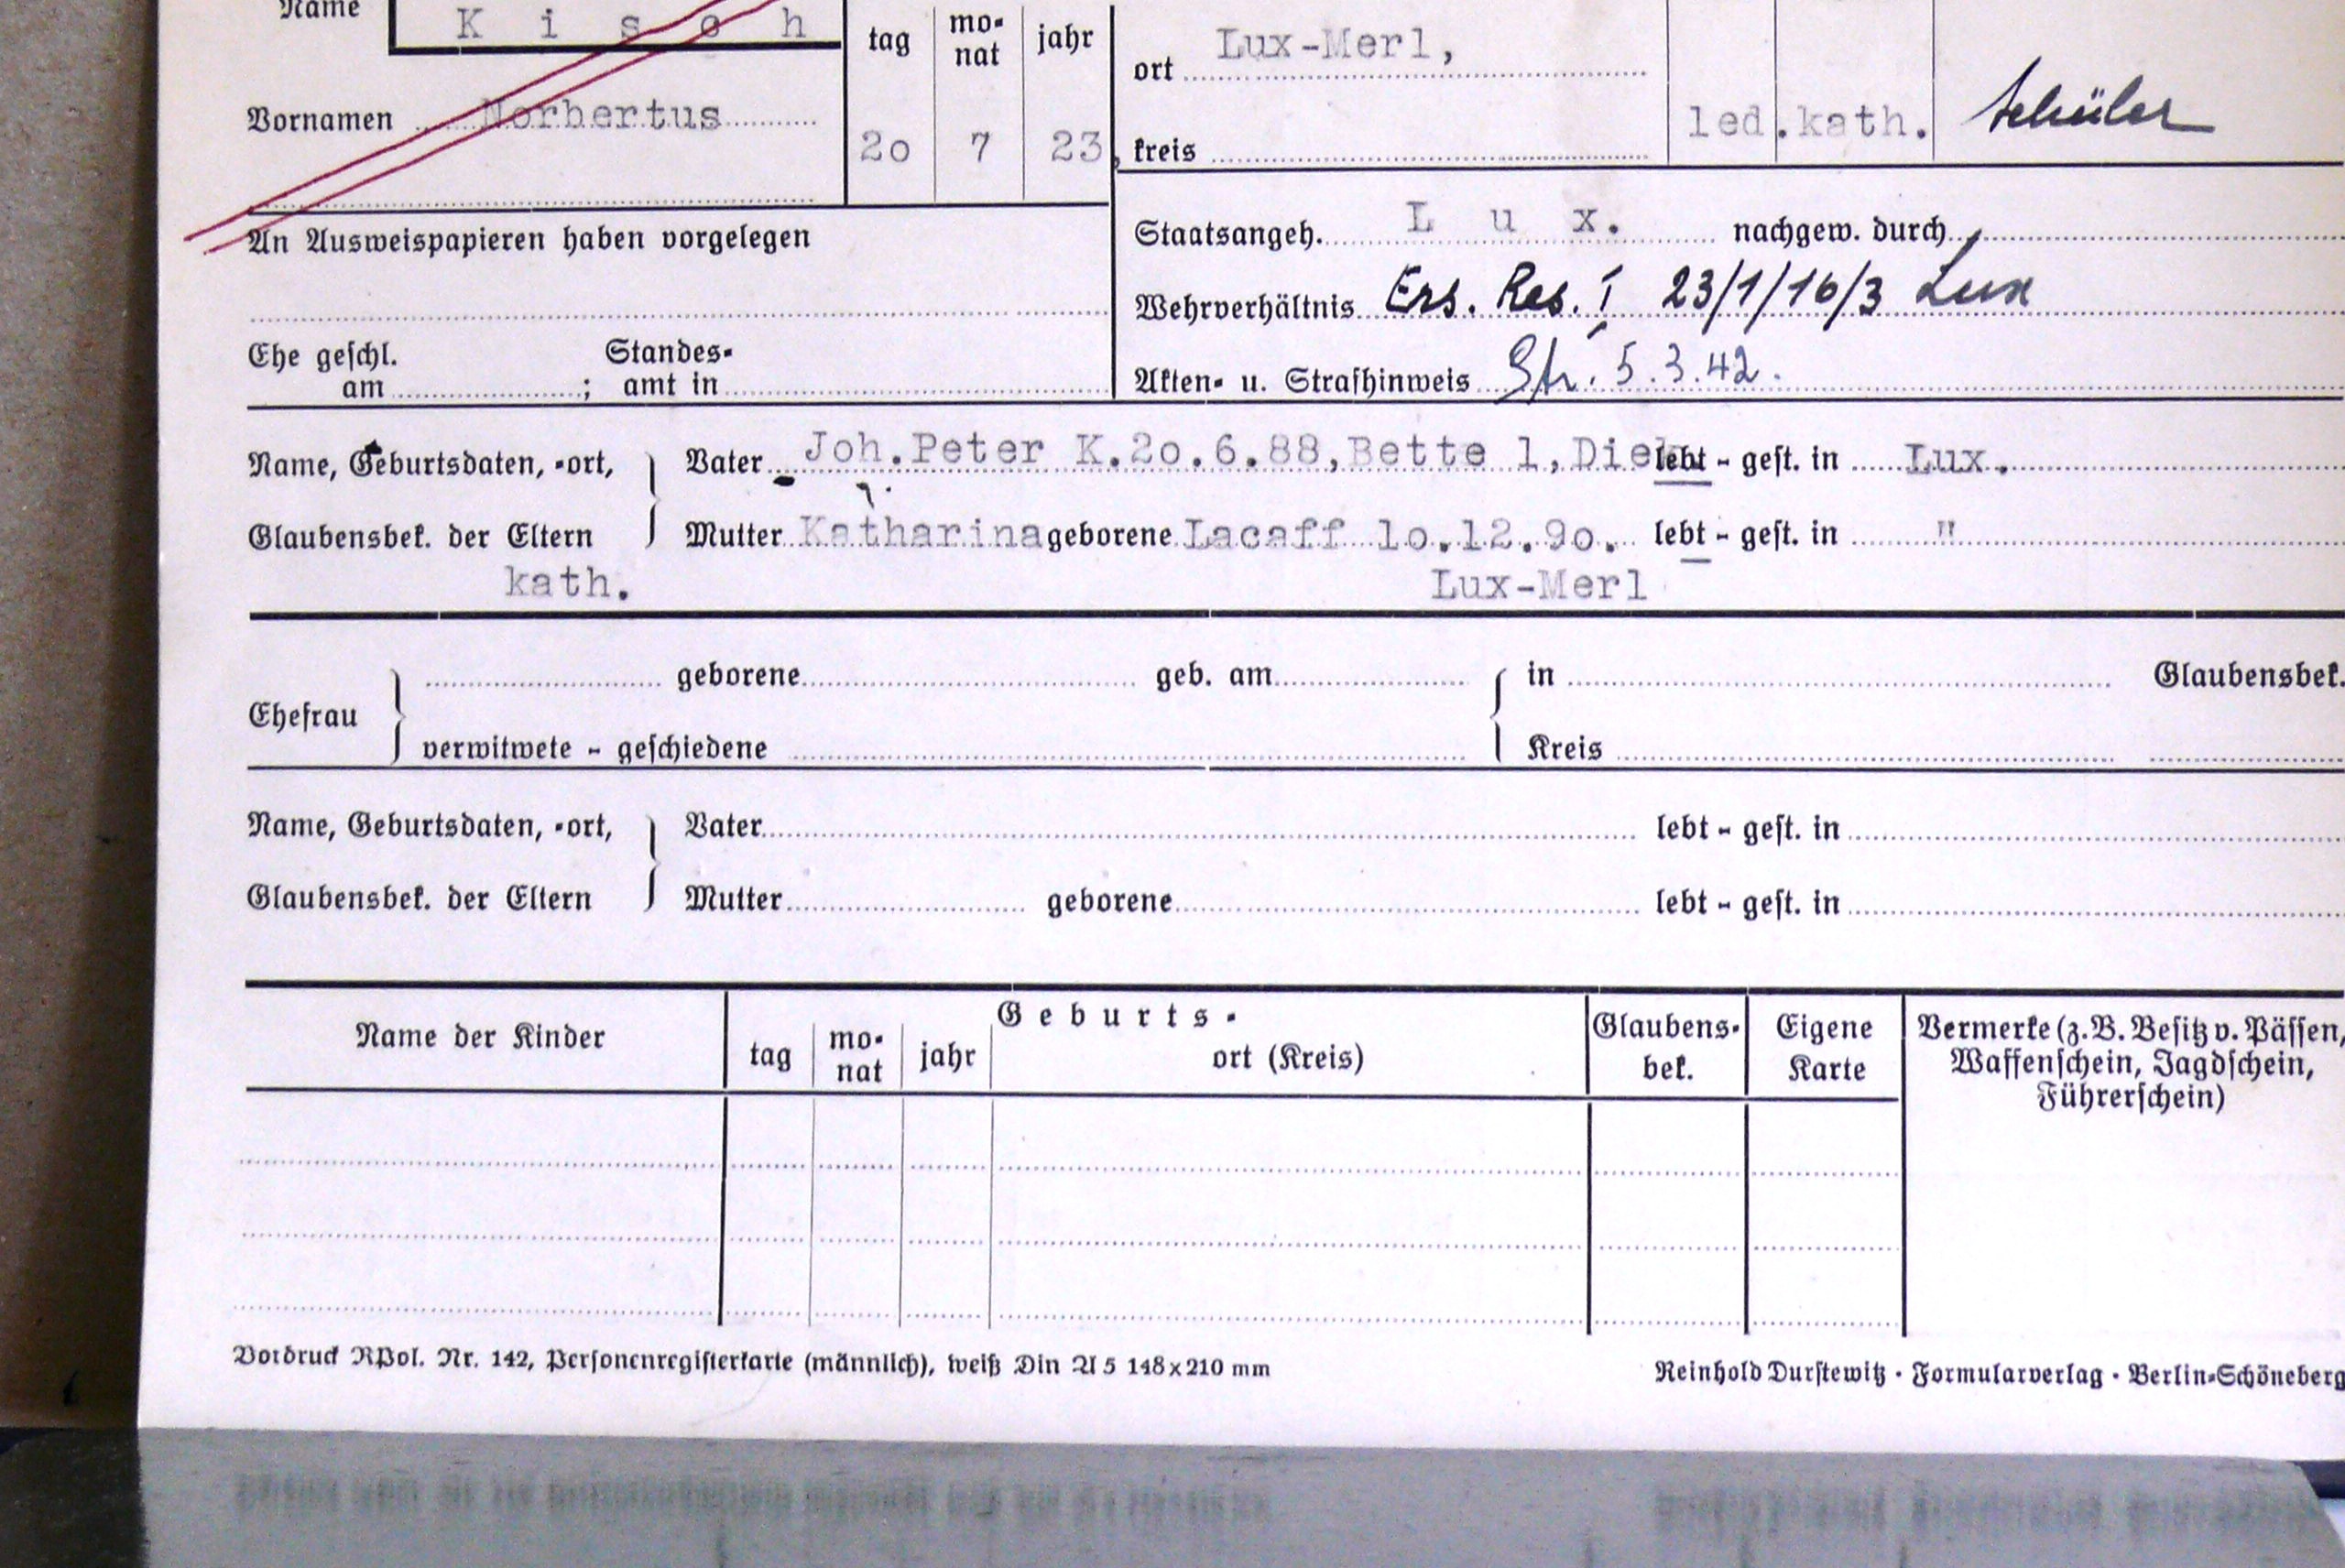 Name K i s c h
tag mo-nat jahr
ort Lux-Merl,
Vornamen Norbertus
20 7 23,
kreis
led. kath. Schüler
An Ausweispapieren haben vorgelegen
Staatsangeh. L u x. nachgew. durch
Wehrverhältnis Ers. Res. I 23/1/16/3 Lux
Ehe geschl. am ; Standes-amt in
Akten- u. Strafhinweis Str. 5.3.42.
Name, Geburtsdaten, -ort, Vater Joh.Peter K.2o.6.88,Bette 1, lebt - gest. in Lux.
Glaubensbek. der Eltern Mutter Katharina geborene Lacaff 1o.12.9o. lebt - gest. in "
kath. Lux-Merl
Ehefrau geborene geb. am in Glaubensbek.
verwitwete - geschiedene Kreis
Name, Geburtsdaten, -ort, Vater lebt - gest. in
Glaubensbek. der Eltern Mutter geborene lebt - gest. in
Name der Kinder
G e b u r t s -
tag mo-nat jahr ort (Kreis)
Glaubens-bek.
Eigene Karte
Vermerke (z. B. Besitz v. Pässen,
Waffenschein, Jagdschein,
Führerschein)
Vordruck RPol. Nr. 142, Personenregisterkarte (männlich), weiß Din A 5 148 x 210 mm
Reinhold Durstewitz · Formularverlag · Berlin-Schöneberg